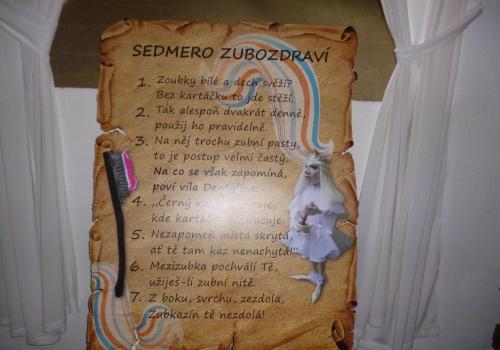 SEDMERO ZUBOZDRAVÍ
1. Zoubky bílé a dech svěží?
Bez kartáčku to jde stěží.
2. Tak alespoň dvakrát denně,
použij ho pravidelně.
3. Na něj trochu zubní pasty,
to je postup velmi častý.
Na co se však zapomíná,
poví víla
4. „Černý
kde
5. Nezapomeň místa skrytá,
ať tě tam kaz nenachytá!"
6. Mezizubka pochválí Tě,
užiješ-li zubní nitě.
7. Z boku, svrchu, zezdola,
Zubkazín tě nezdolá!